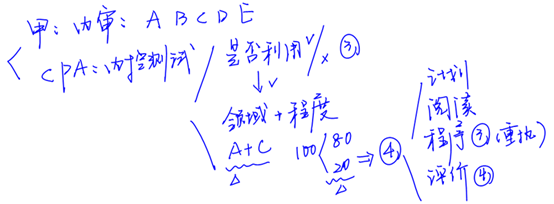 甲：内审：A B C D E
CPA：内控测试
是否利用 √ / × ③
↓√
领域 + 程度
A+C 100 80
△ 20 ⇒ ④
△
计划
阅读
程序③（重执）
评价④